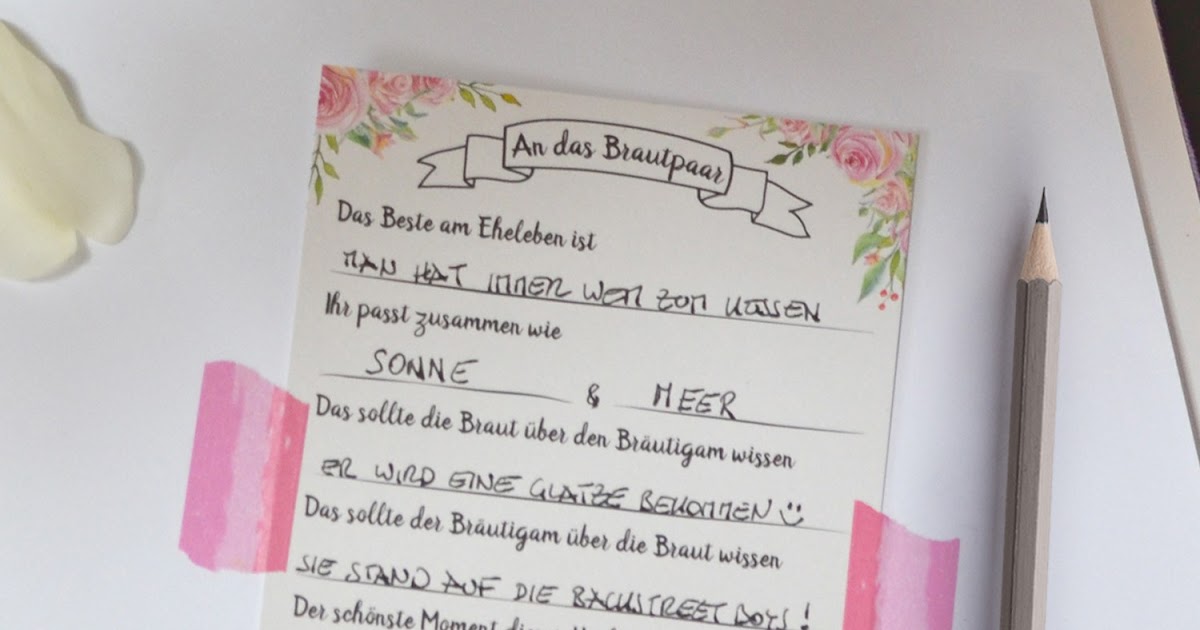 An das Brautpaar
Das Beste am Eheleben ist
MAN HAT IMMER WEN ZUM KÜSSEN
Ihr passt zusammen wie
SONNE & MEER
Das sollte die Braut über den Bräutigam wissen
ER WIRD EINE GLATZE BEKOMMEN ☺
Das sollte der Bräutigam über die Braut wissen
SIE STAND AUF DIE BACKSTREET BOYS!
Der schönste Moment